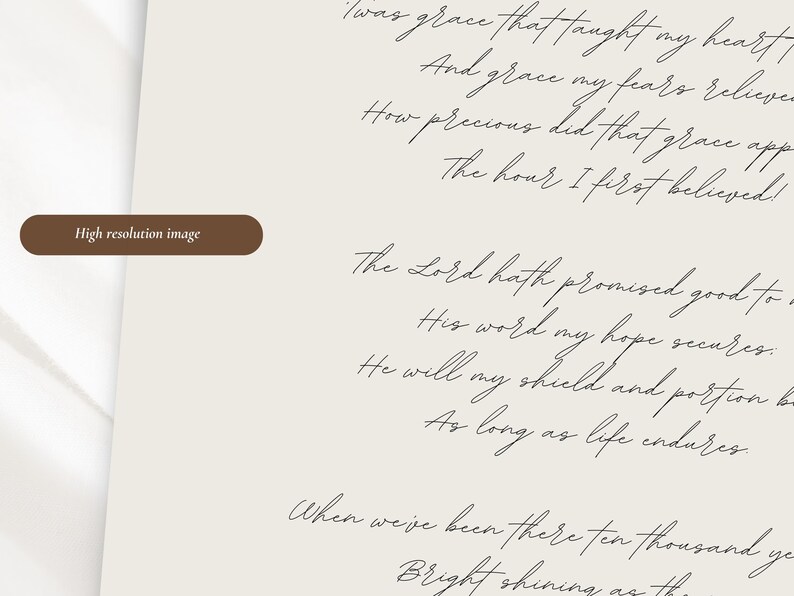 'Twas grace that taught my heart t
And grace my fears relieved
How precious did that grace app
The hour I first believed!
High resolution image
The Lord hath promised good to m
His word my hope secures;
He will my shield and portion b
As long as life endures.
When we've been there ten thousand ye
Bright shining as the